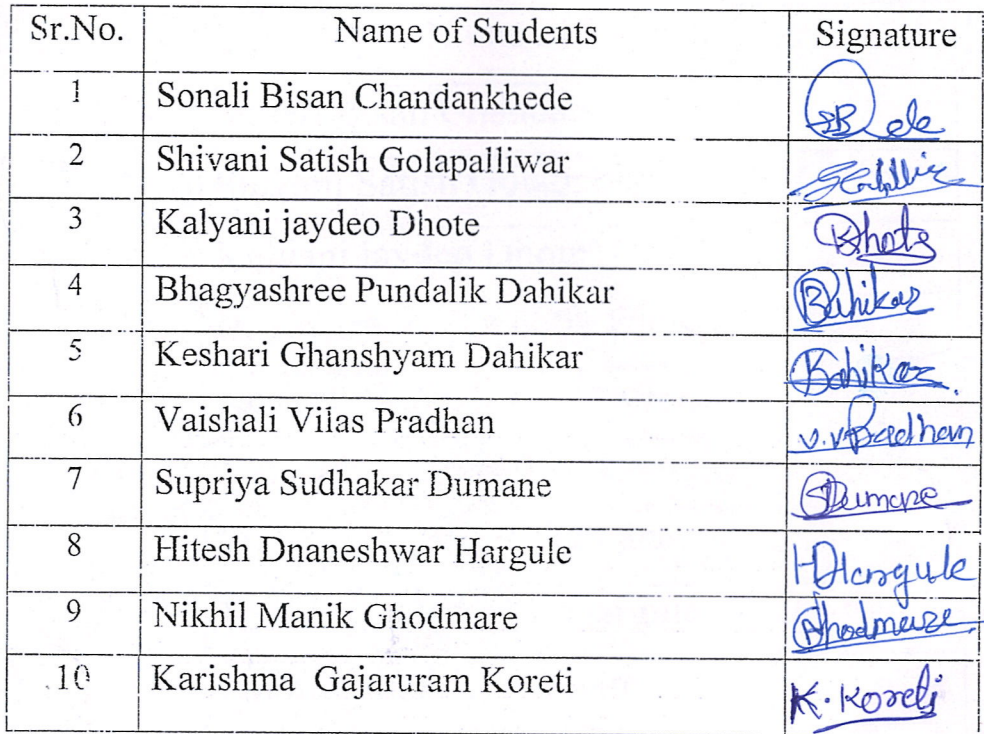 Sr.No. Name of Students Signature
1 Sonali Bisan Chandankhede
2 Shivani Satish Golapalliwar
3 Kalyani jaydeo Dhote Dhote
4 Bhagyashree Pundalik Dahikar Dahikar
5 Keshari Ghanshyam Dahikar Dahikar
6 Vaishali Vilas Pradhan V.V Pradhan
7 Supriya Sudhakar Dumane Dumane
8 Hitesh Dnaneshwar Hargule HDHargule
9 Nikhil Manik Ghodmare Ghodmare
10 Karishma Gajaruram Koreti K. Koreti